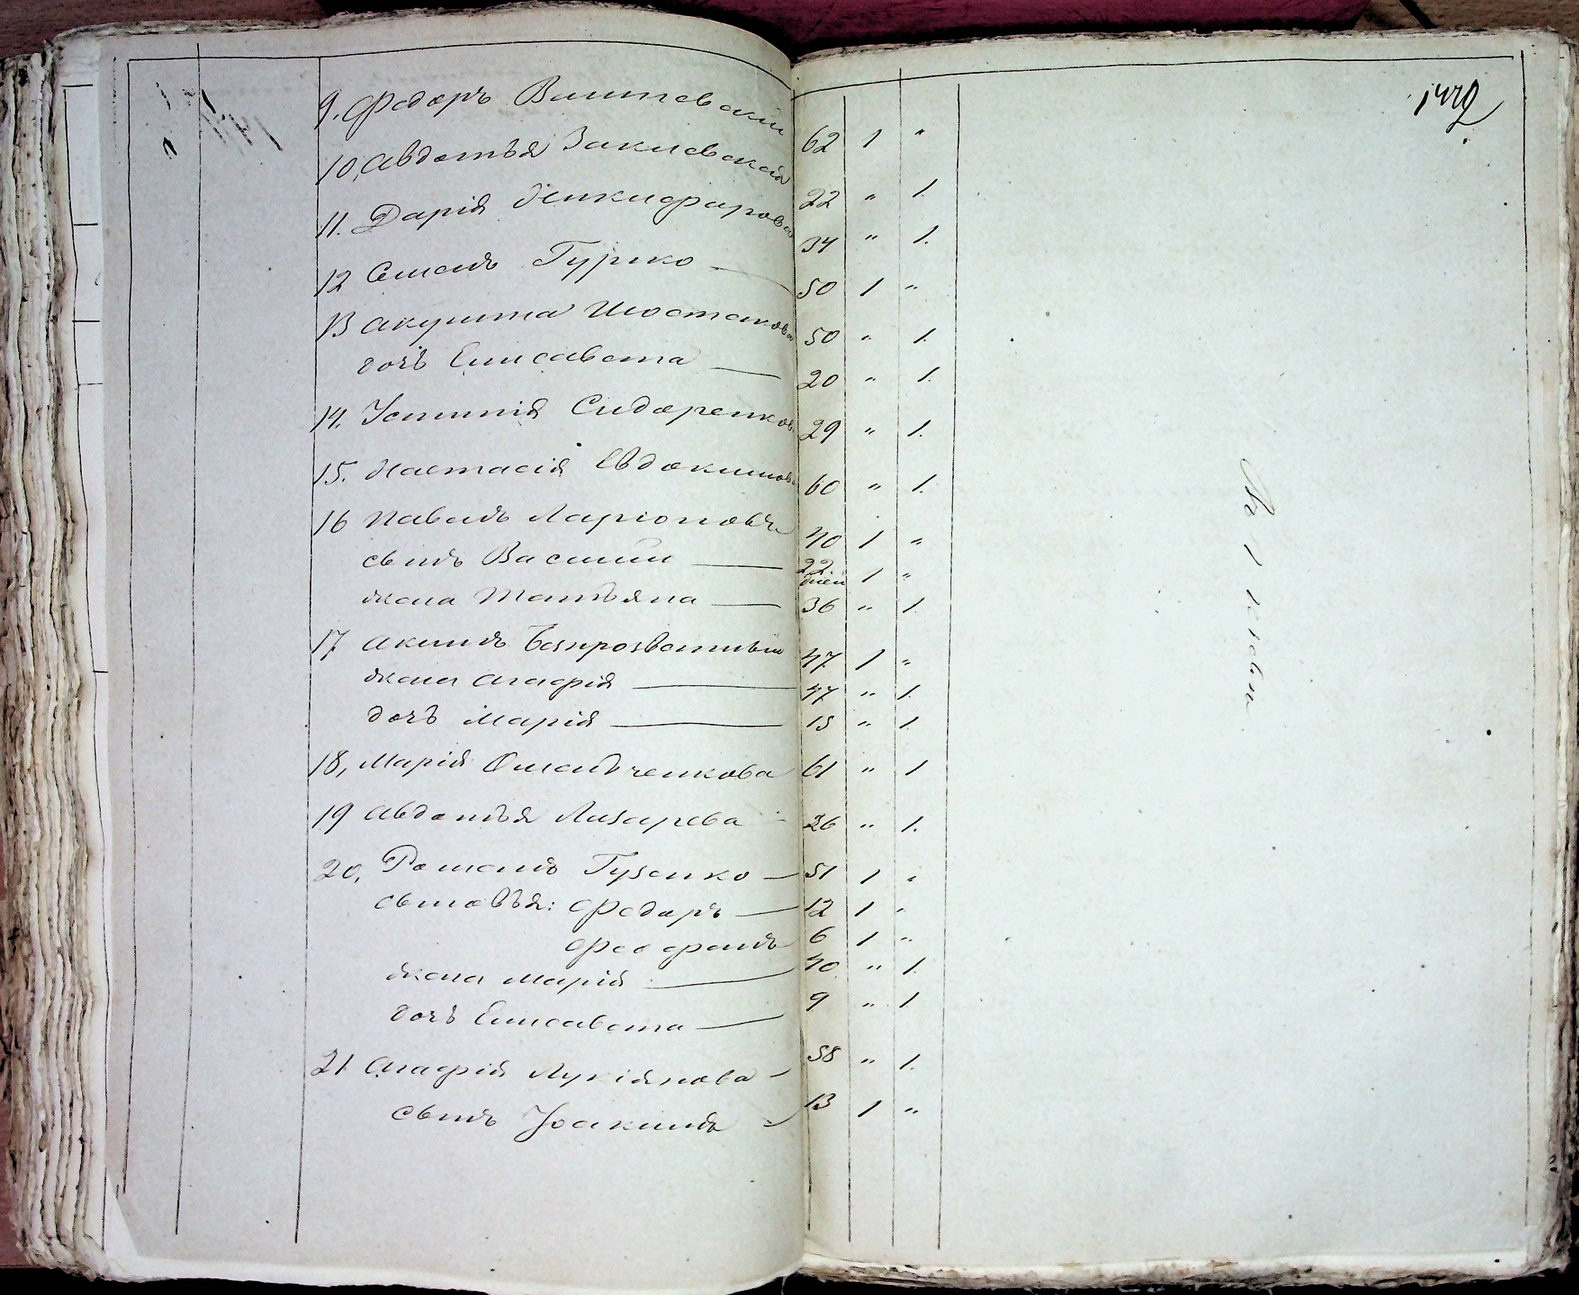 1442
9. Федоръ Виитевскій 62 1 "
10, Авдотья Закиевская 22 " 1.
11. Дарія Никифорова 34 " 1.
12 Семенъ Гурко 50 1 "
13 Акулина Шостакова 50 " 1.
дочь Елисавета 20 " 1.
14. Устинія Сидоренкова 29 " 1.
15. Настасія Евдокимова 60 " 1.
16 Павелъ Ларіоновъ 40 1 "
сынъ Василій 22 дней 1 "
жена Татьяна 36 " 1.
17 Акимъ Безпрозванный 47 1 "
жена Агафія 47 " 1.
дочь Марія 15 " 1.
18, Марія Омельченкова 61 " 1
19 Авдотья Лазарева 26 " 1.
20, Романъ Гузенко 51 1 "
сыновья: Федоръ 12 1 "
Феофанъ 6 1 "
жена Марія 40 " 1.
дочь Елисавета 9 " 1
21 Агафія Лукіянова 58 " 1.
сынъ Іоакимъ 13 1 "